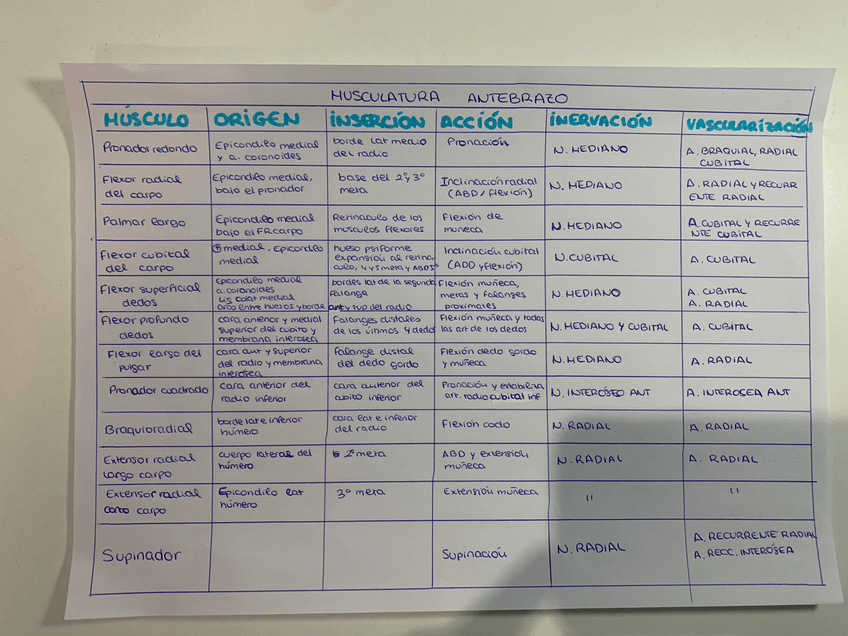 MUSCULATURA ANTEBRAZO
MÚSCULO ORIGEN INSERCIÓN ACCIÓN INERVACIÓN VASCULARIZACIÓN
Pronador redondo
Epicondilo medial
y a. coronoides
borde lat medio
del radio
Pronación
N. MEDIANO
A. BRAQUIAL, RADIAL
CUBITAL
Flexor radial
del carpo
Epicondilo medial,
bajo el pronador
base del 2º y 3º
meta
Inclinación radial
(ABD / flexión)
N. MEDIANO
A. RADIAL y RECURR
ENTE RADIAL
Palmar largo
Epicondilo medial
bajo el FRcarpo
Retinaculo de los
musculos flexores
Flexión de
muneca
N. MEDIANO
A. CUBITAL y RECURRE
NTE CUBITAL
Flexor cubital
del carpo
medial. Epicondilo
medial
hueso psiforme
expansión al retina
culo, 4 y 5 meta y ABD5º
Inclinación cubital
(ADD y flexión)
N. CUBITAL
A. CUBITAL
Flexor superficial
dedos
Epicondilo medial
a. coronoides
Lig colat medial
arco entre huesos y borde
bordes lat de la segunda
falange
ant y sup del radio
Flexión muñeca,
metas y falanges
proximales
N. MEDIANO
A. CUBITAL
A. RADIAL
Flexor profundo
dedos
cara anterior y medial
superior del cubito y
membrana interosea
Falanges distales
de los últimos 4 dedos
Flexión muñeca y todas
las art de los dedos
N. MEDIANO Y CUBITAL
A. CUBITAL
Flexor largo del
pulgar
cara ant y superior
del radio y membrana
interosea
Falange distal
del dedo gordo
Flexión dedo gordo
y muñeca
N. MEDIANO
A. RADIAL
Pronador cuadrado
cara anterior del
radio inferior
cara anterior del
cubito inferior
Pronación y estabiliza
art. radio cubital inf
N. INTERÓSEO ANT
A. INTEROSEA ANT
Braquioradial
borde lat e inferior
húmero
cara lat e inferior
del radio
Flexión codo
N. RADIAL
A. RADIAL
Extensor radial
largo carpo
cuerpo lateral del
húmero
2º meta
ABD y extensión
muñeca
N. RADIAL
A. RADIAL
Extensor radial
corto carpo
Epicondilo lat
húmero
3º meta
Extensión muñeca
"
"
Supinador
Supinación
N. RADIAL
A. RECURRENTE RADIAL
A. RECC. INTERÓSEA